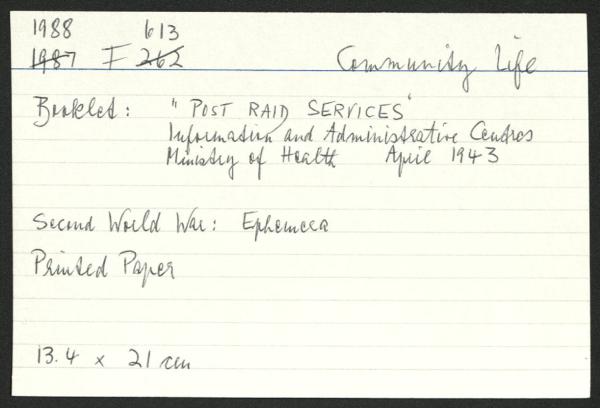 1988 613
1987 F 262 Community Life
Booklet: "POST RAID SERVICES"
Information and Administrative Centres
Ministry of Health April 1943
Second World War: Ephemera
Printed Paper
13.4 x 21 cm